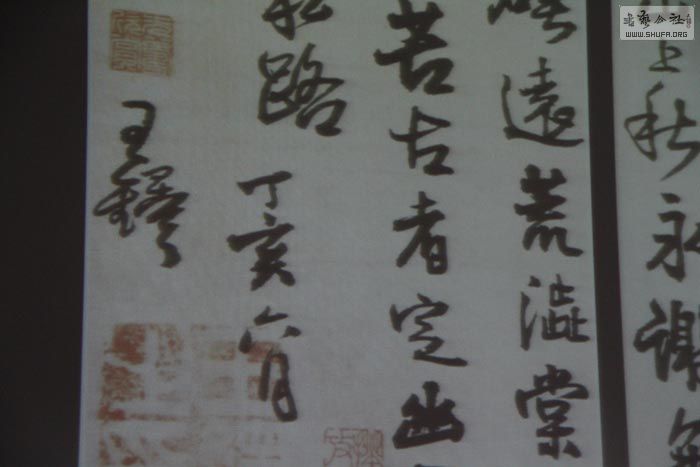 上秋永謝
遠荒澁棠
苦古者定幽
路 丁亥六月
王鐸
公社
WWW.SHUFA.ORG